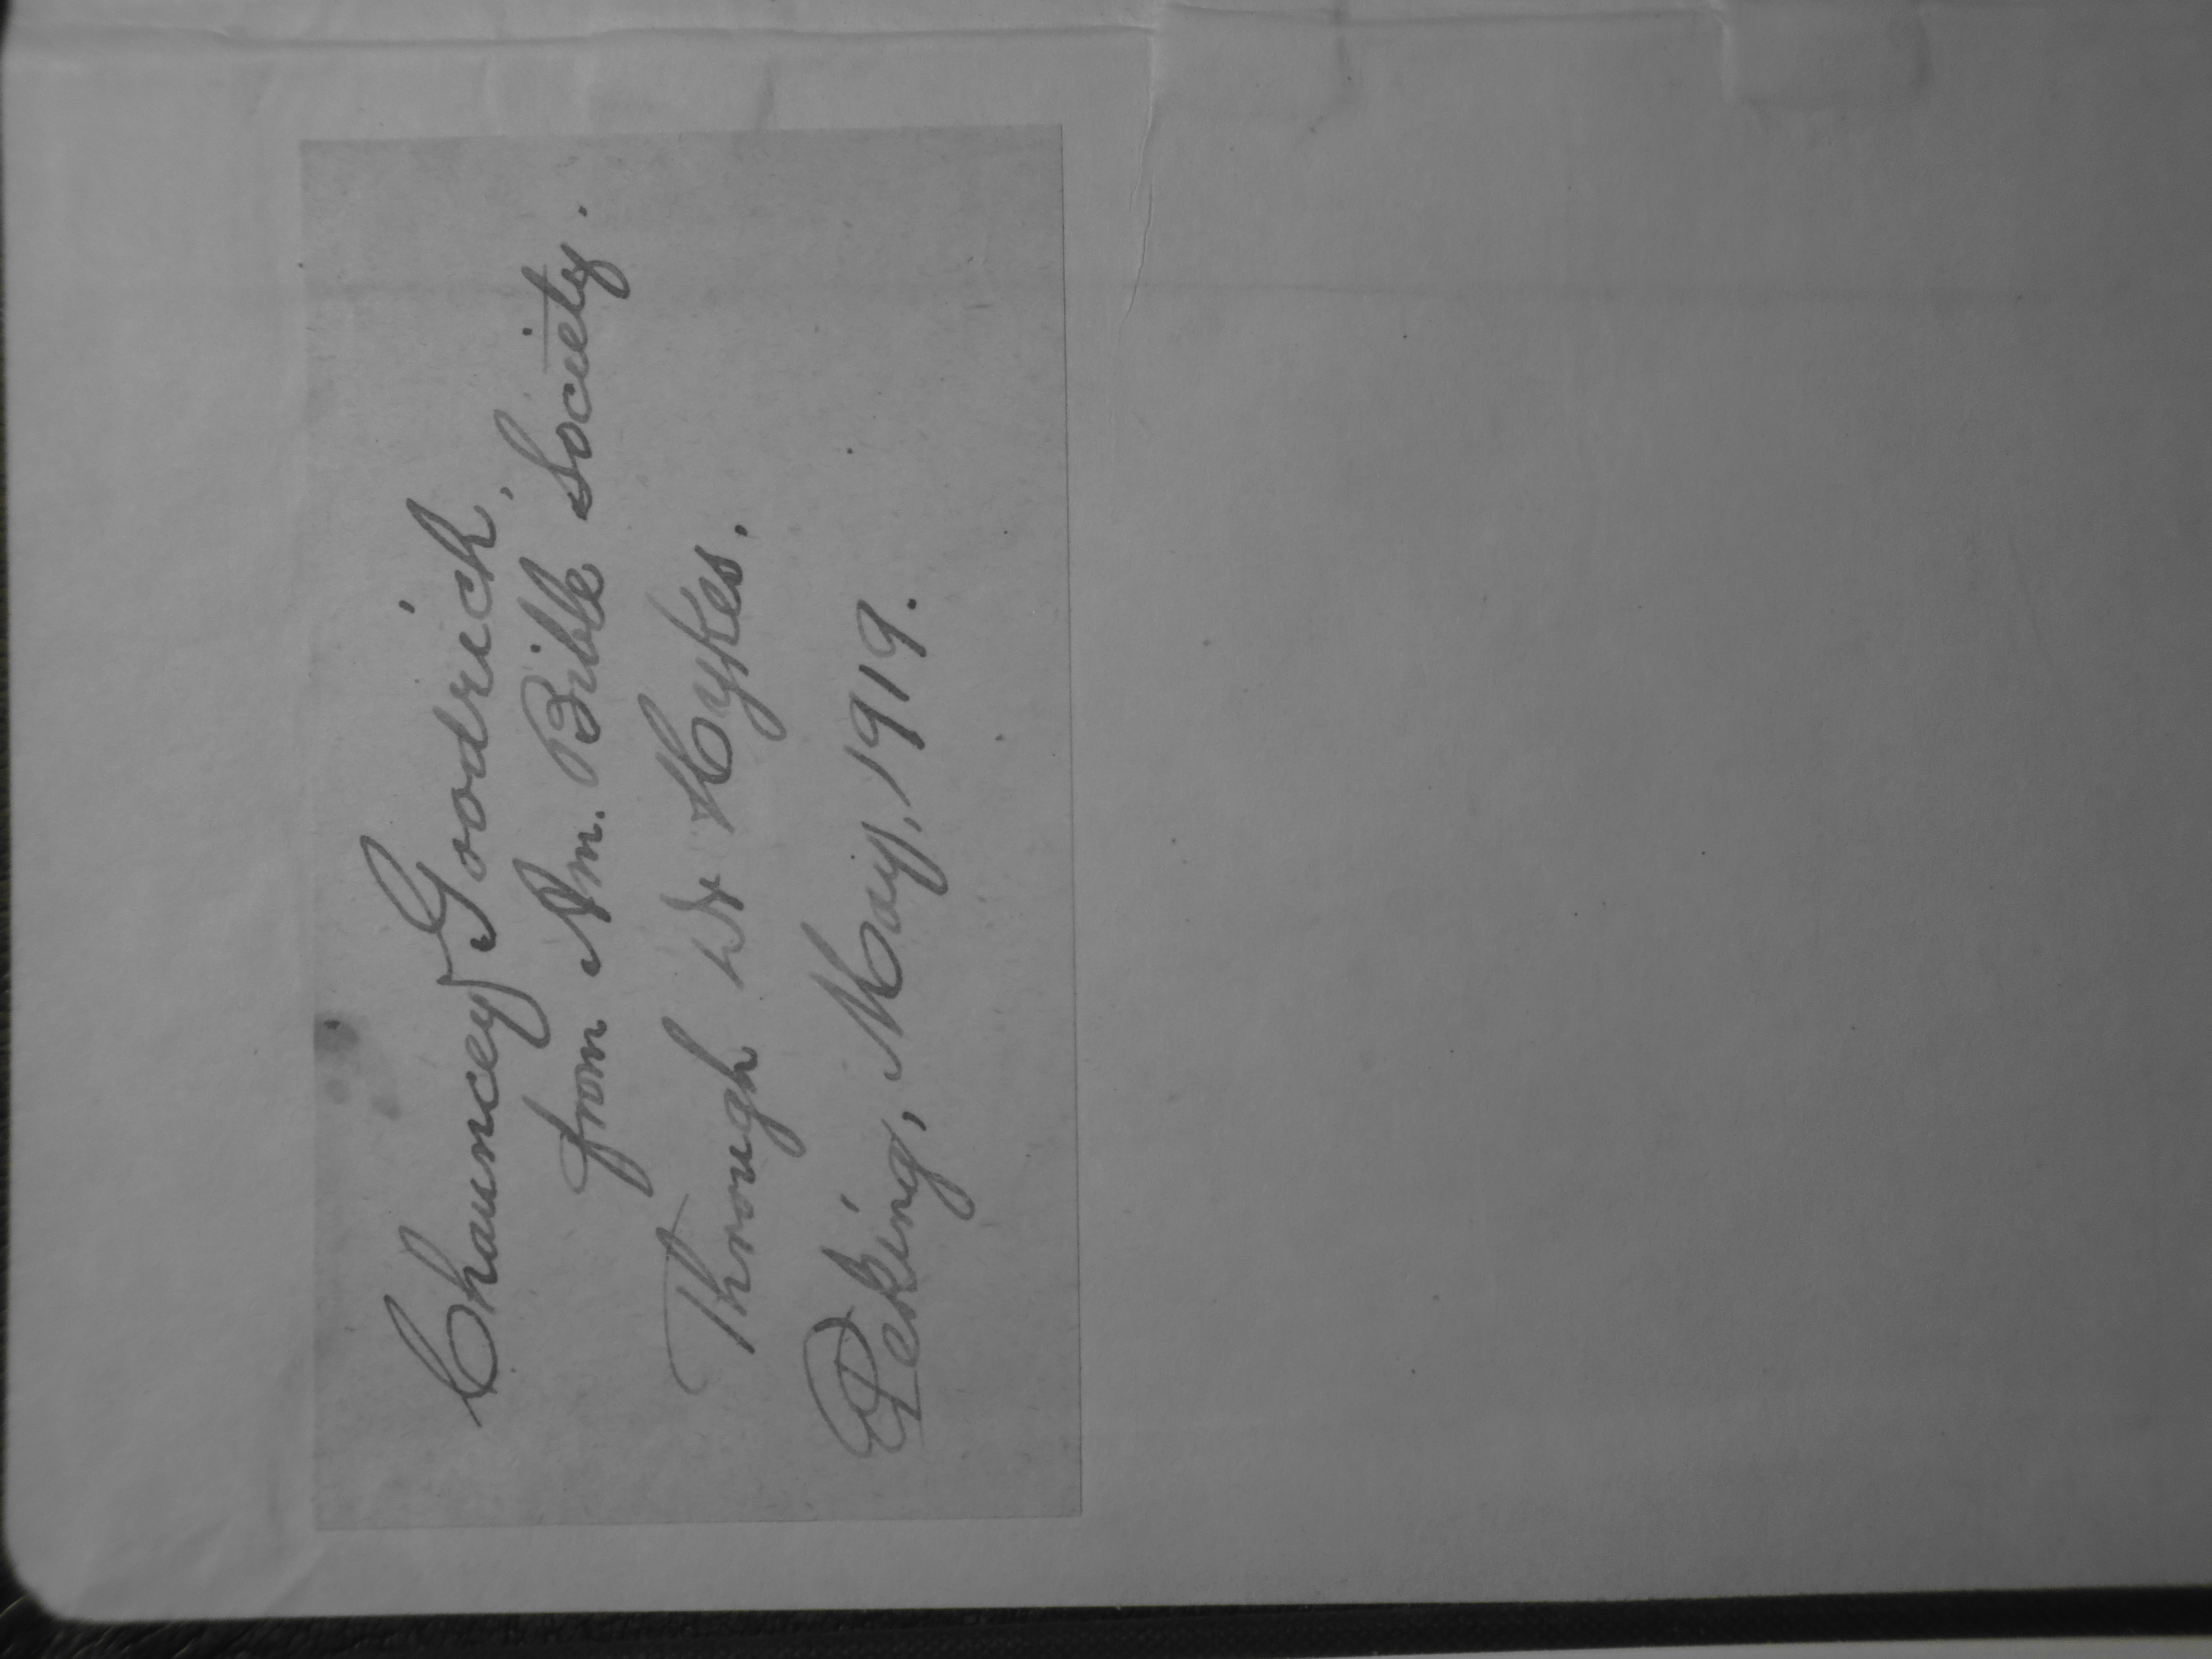 Chauncey Goodrich,
from Am. Bible Society.
Through Dr Hykes.
Peking, May, 1919.